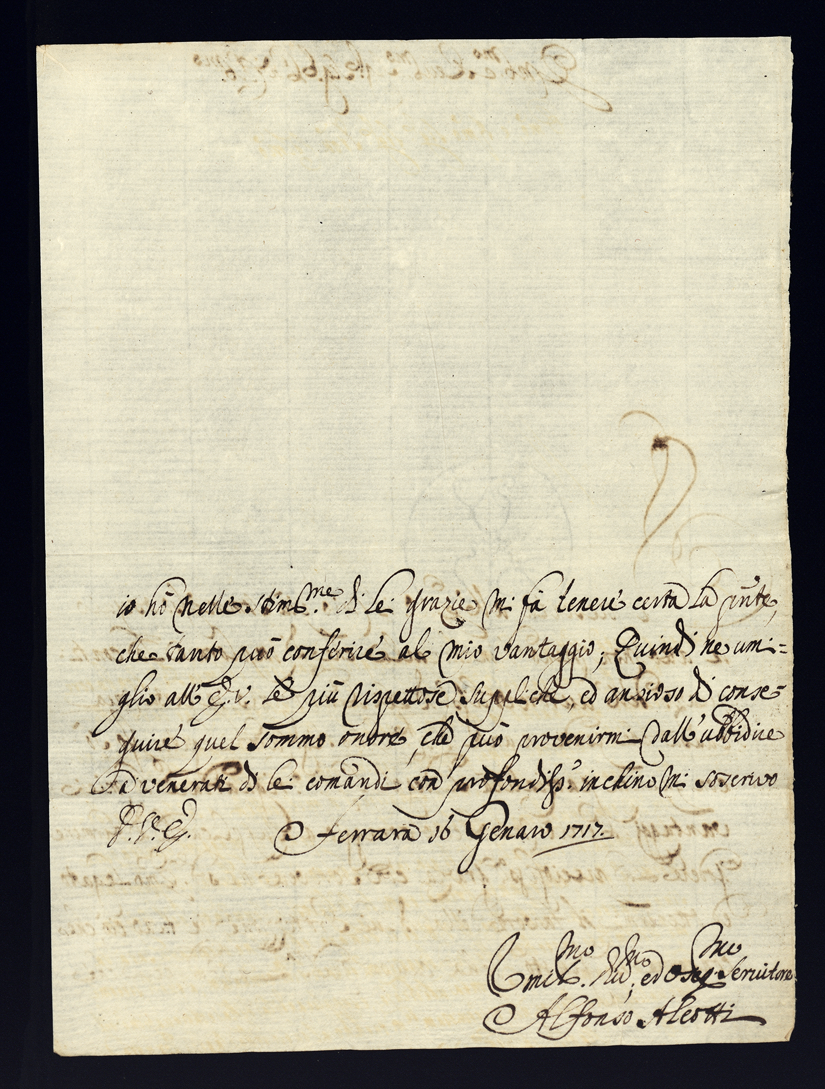 io hò nelle stim.me di lei grazie mi fà tenere certa la
che tanto può conferire al mio vantaggio; Quindi ne umi=
glio all' E.V. le più rispettose suppliche, ed ansioso di conse=
guire quel sommo onore, che può provenirmi dall' ubbidire
a' venerati di lei comandi con profondiss.o inchino mi soscrivo
D. V. E.
Ferrara 16 Genaro 1717.
Umil.mo ed Oseq.mo Servitore
Alfonso Aleotti